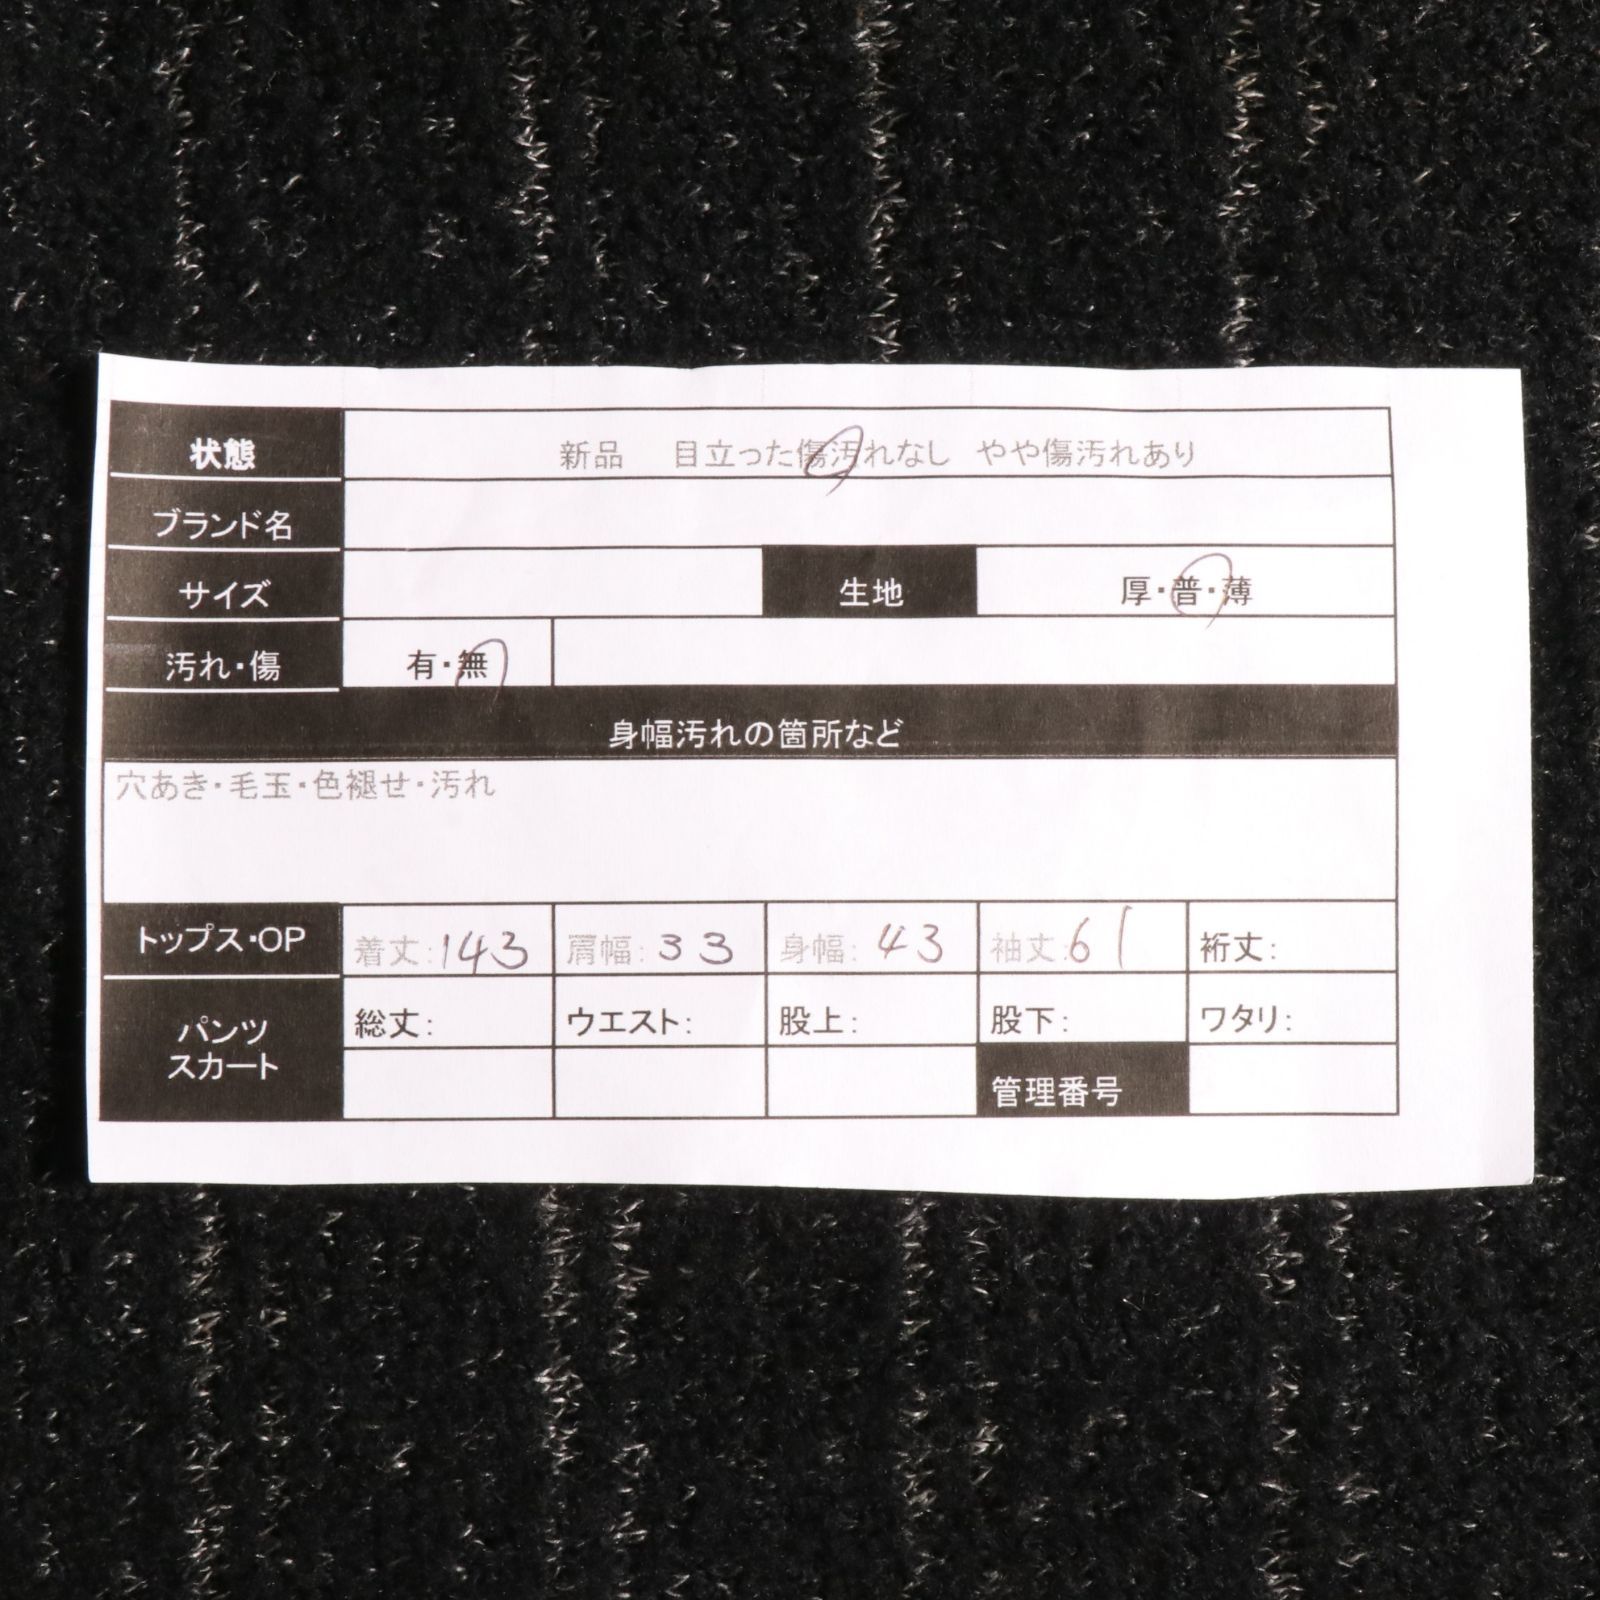 状態 新品 目立った傷汚れなし やや傷汚れあり
ブランド名
サイズ 生地 厚・普・薄
汚れ・傷 有・無
身幅汚れの箇所など
穴あき・毛玉・色褪せ・汚れ
トップス・OP 着丈:143 肩幅:33 身幅:43 袖丈:61 裄丈:
パンツ スカート 総丈: ウエスト: 股上: 股下: ワタリ:
管理番号